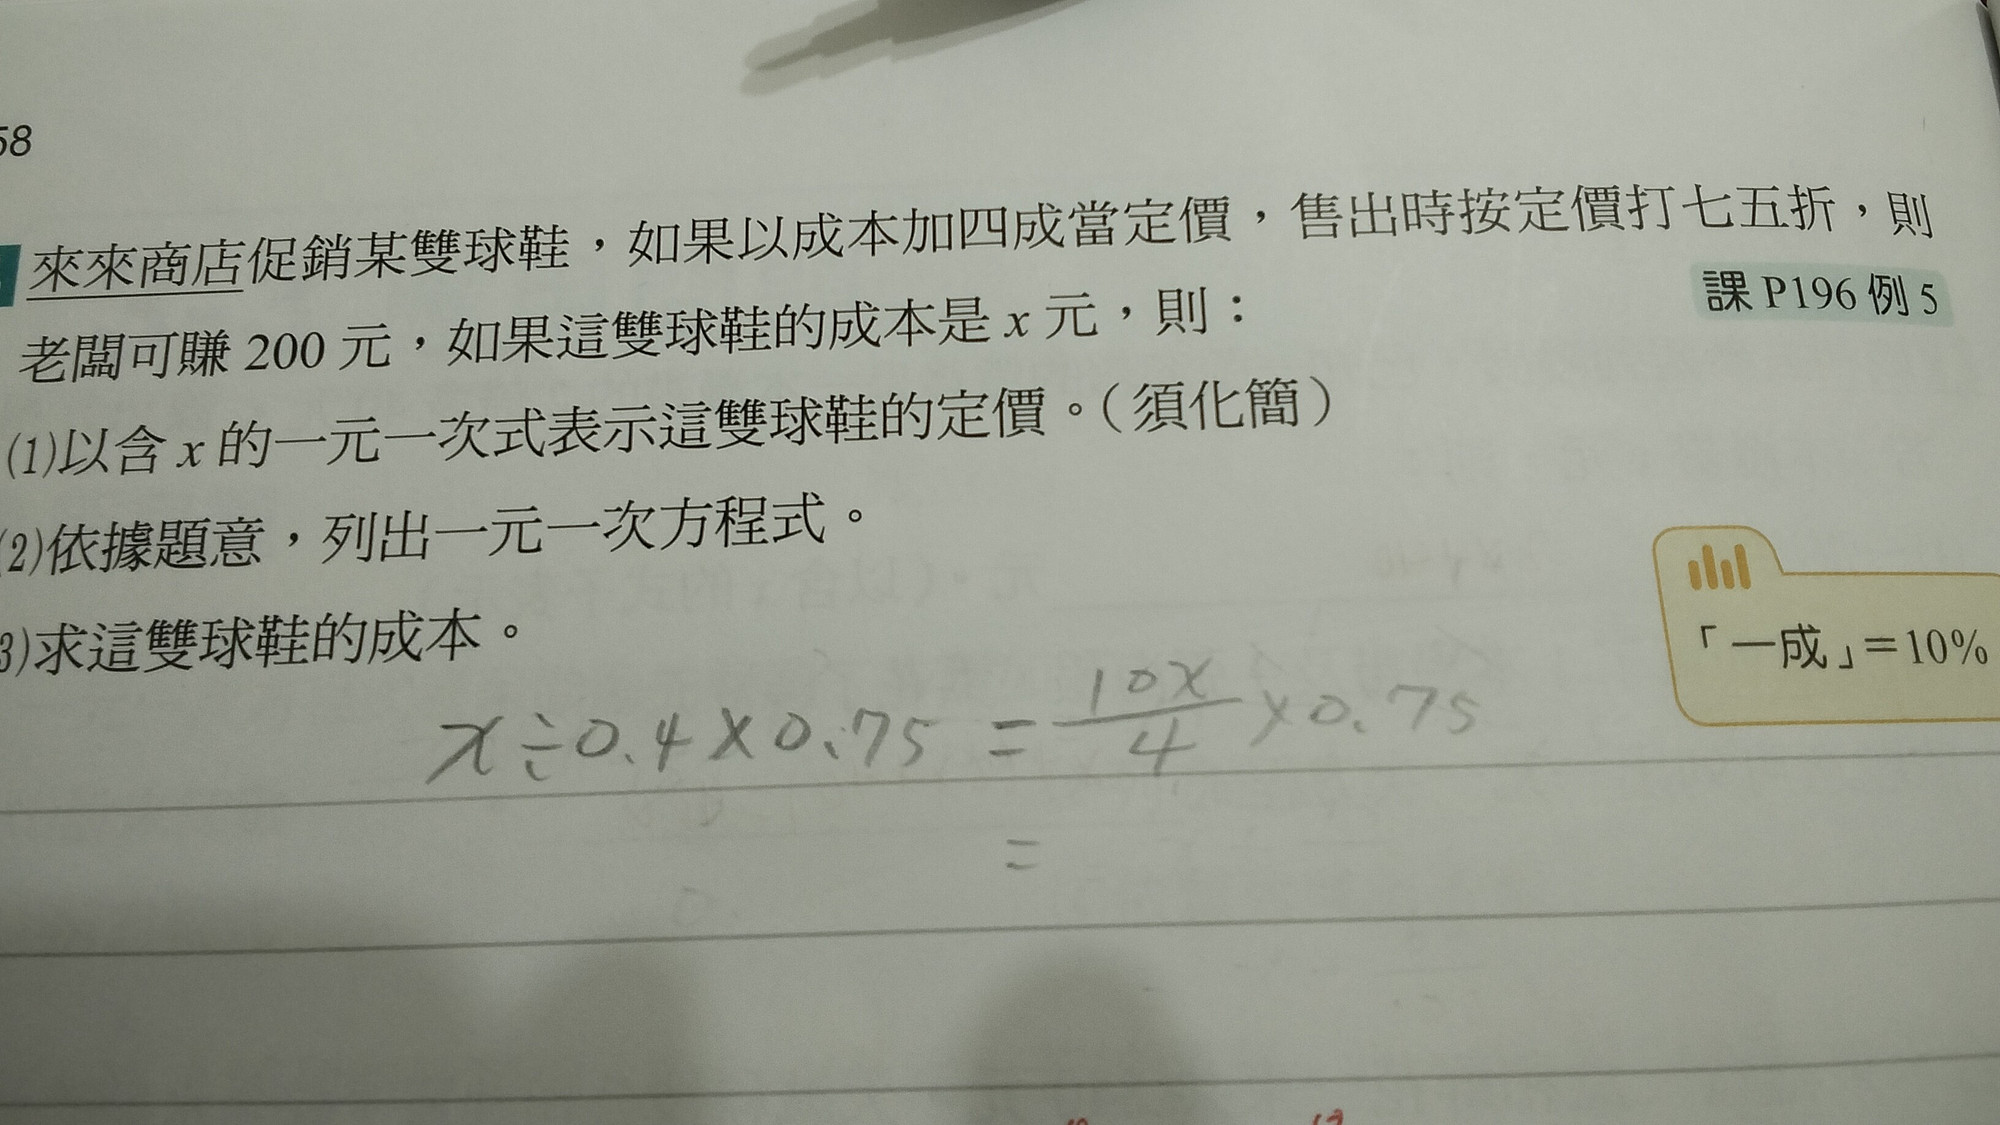 58
來來商店促銷某雙球鞋，如果以成本加四成當定價，售出時按定價打七五折，則
老闆可賺 200 元，如果這雙球鞋的成本是 x 元，則：
課 P196 例 5
(1)以含 x 的一元一次式表示這雙球鞋的定價。（須化簡）
(2)依據題意，列出一元一次方程式。
3)求這雙球鞋的成本。
「一成」＝10%
x÷0.4×0.75 = 10x/4 ×0.75
=